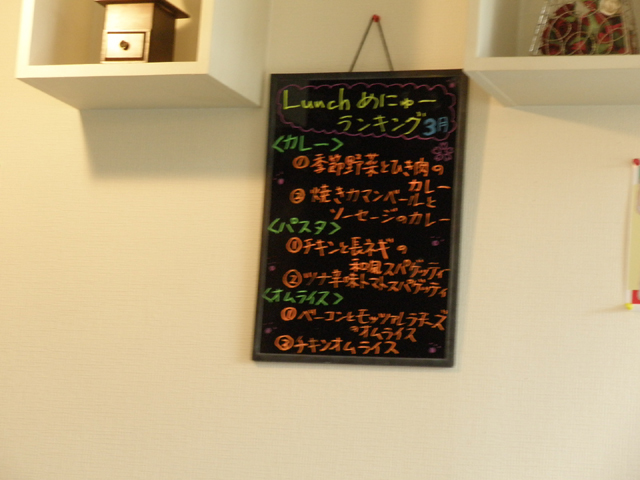 Lunch めにゅー
ランキング 3月
<カレー>
① 季節野菜とひき肉の
カレー
② 焼きカマンベールと
ソーセージのカレー
<パスタ>
① チキンと長ネギの
和風スパゲッティー
② ツナ辛味トマトスパゲッティ
<オムライス>
① ベーコンとモッツァレラチーズ
のオムライス
② チキンオムライス